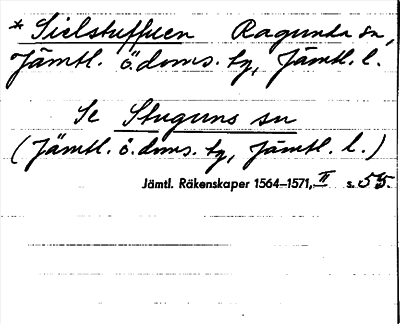 * Sielstuffuen Ragunda sn,
Jämtl. ö. doms. tg, Jämtl. l.
Se Stuguns sn
(Jämtl. ö. doms. tg, Jämtl. l.)
Jämtl. Räkenskaper 1564–1571, II s. 55.